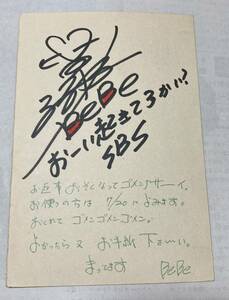 BeBe
おーい起きてるかい?
SBS
お返事おそくなってゴメンナサーイ。
お便りの方は 7/20 によみます。
おくれて ゴメンゴメンゴメン。
よかったら又 お手紙下さーい。
まってます BeBe